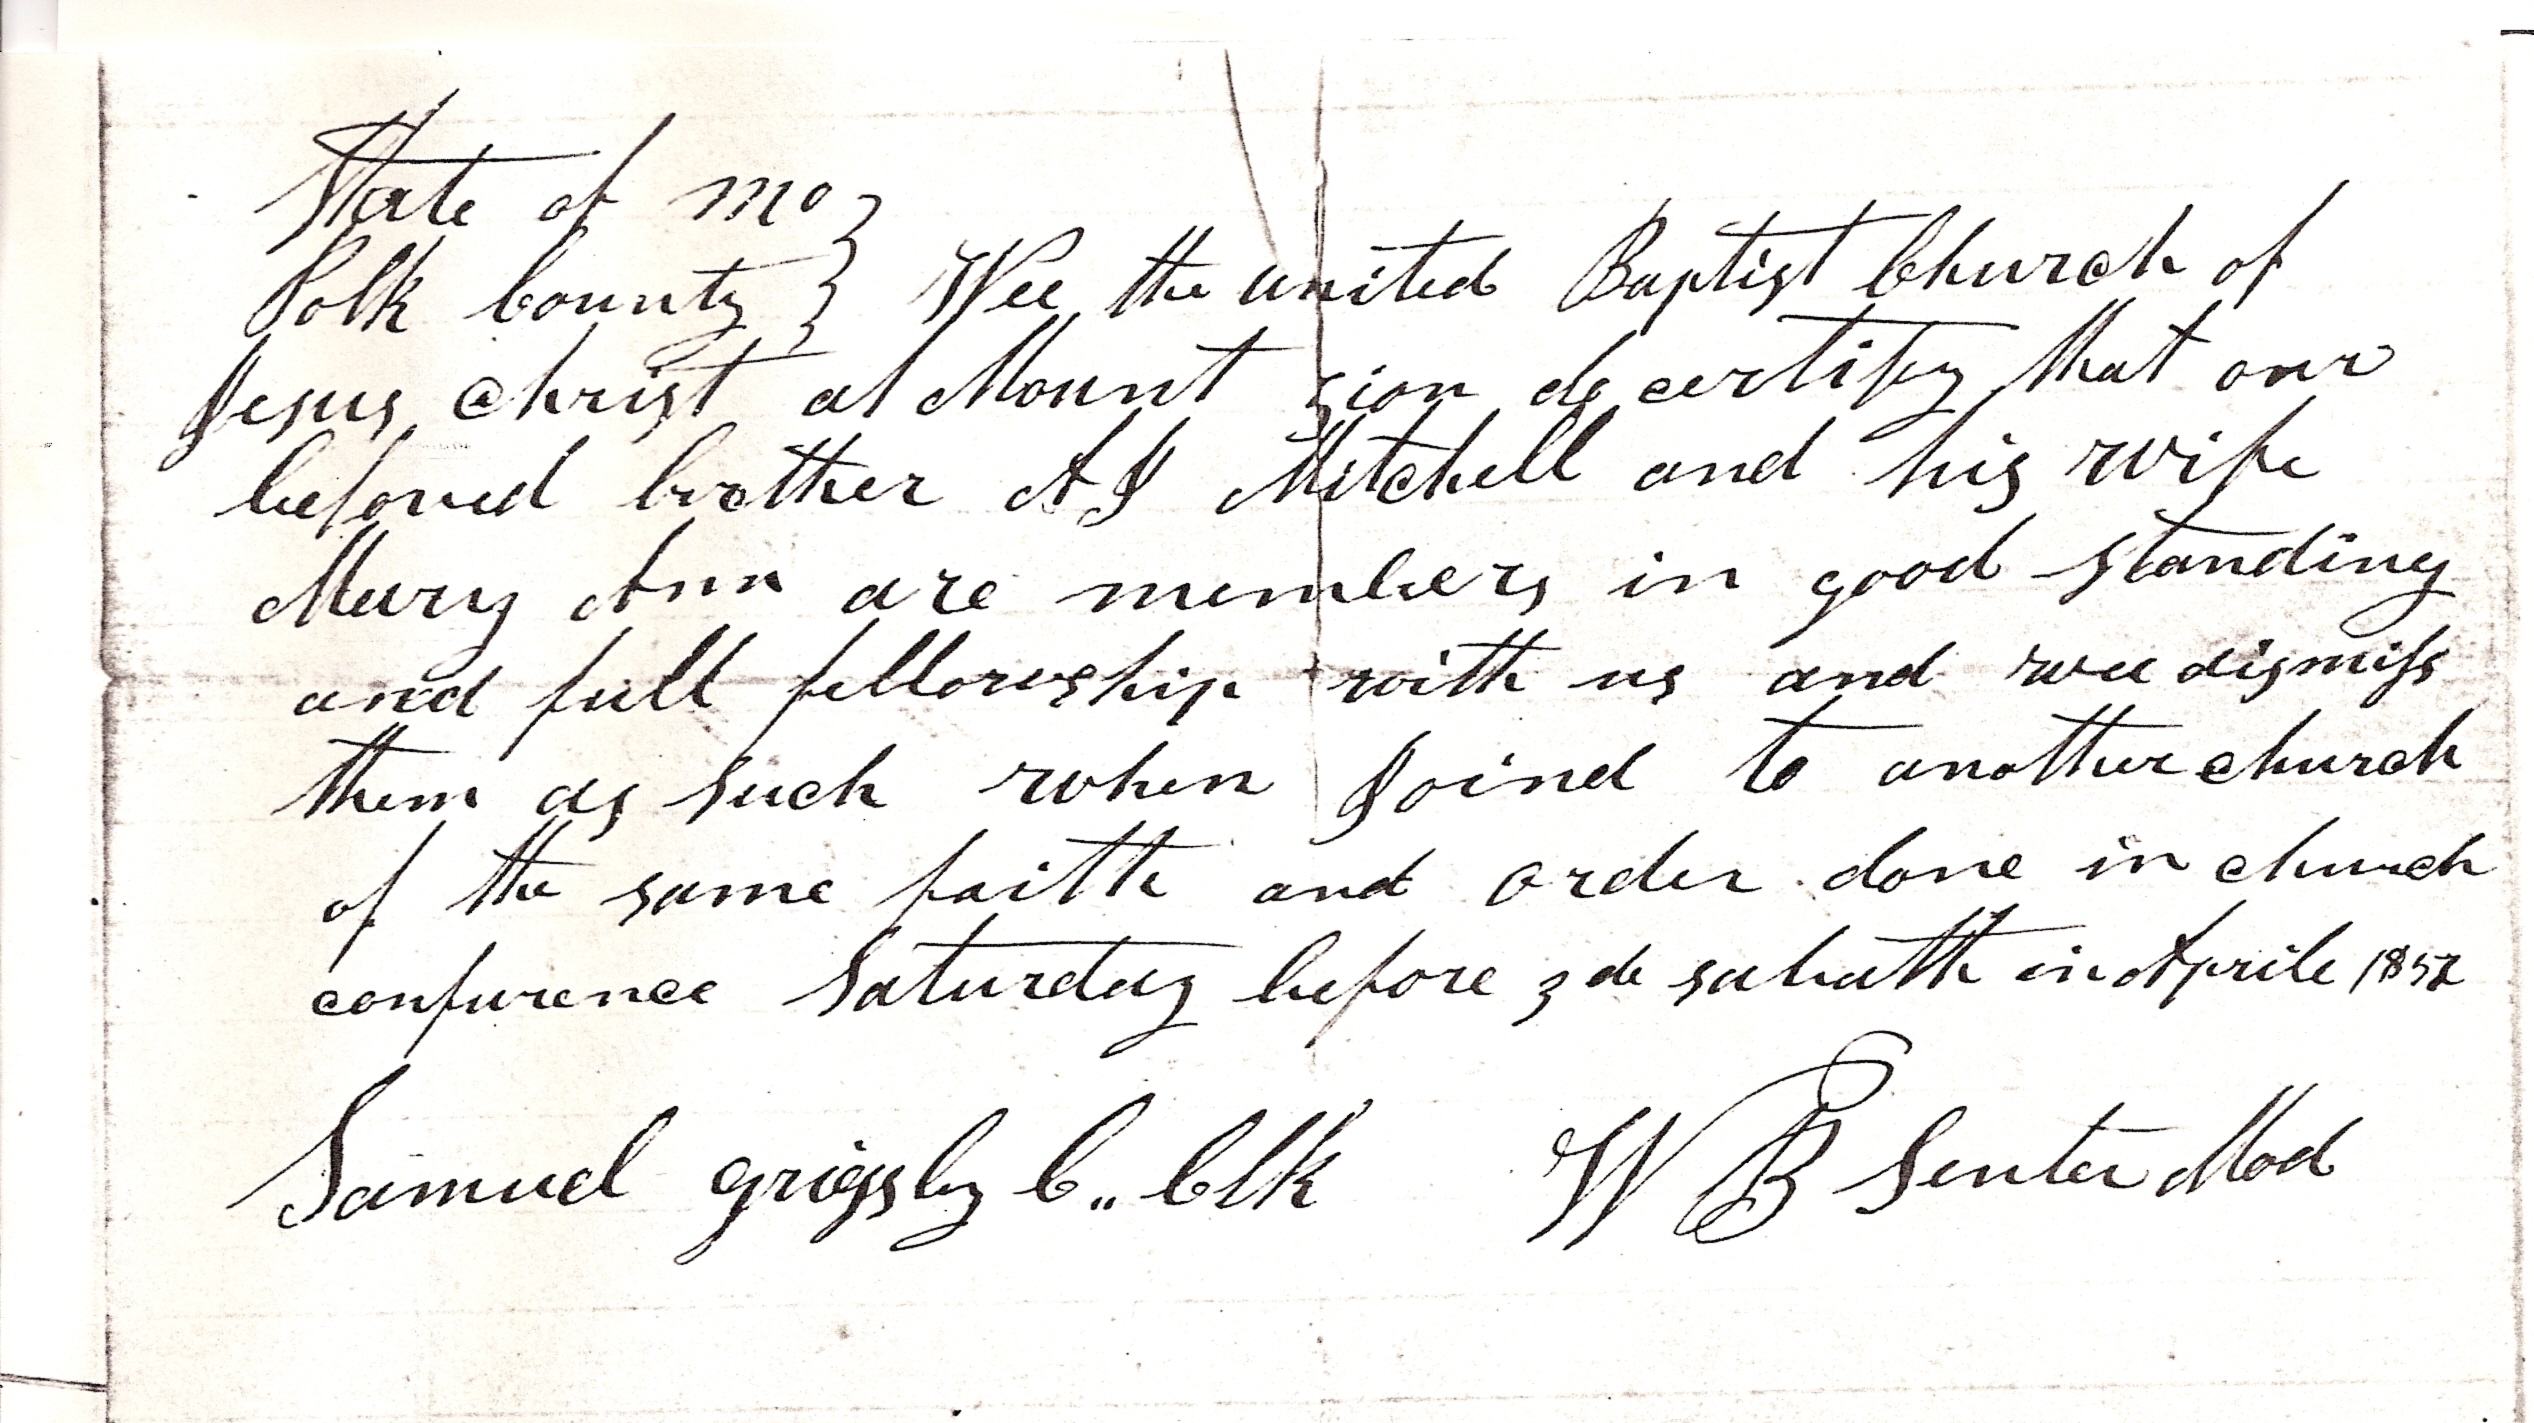 State of Mo }
Polk County } Wee the united Baptist Church of
Jesus Christ at Mount zion do certify that our
beloved brother A J Mitchell and his wife
Mary Ann are members in good standing
and full fellowship with us and wee dismiss
them as such when Joind to another church
of the same faith and order done in church
confurence Saturday before 3de sabath in Aprile 1852
Samuel grigsby C.. Clk W B Senter Mod